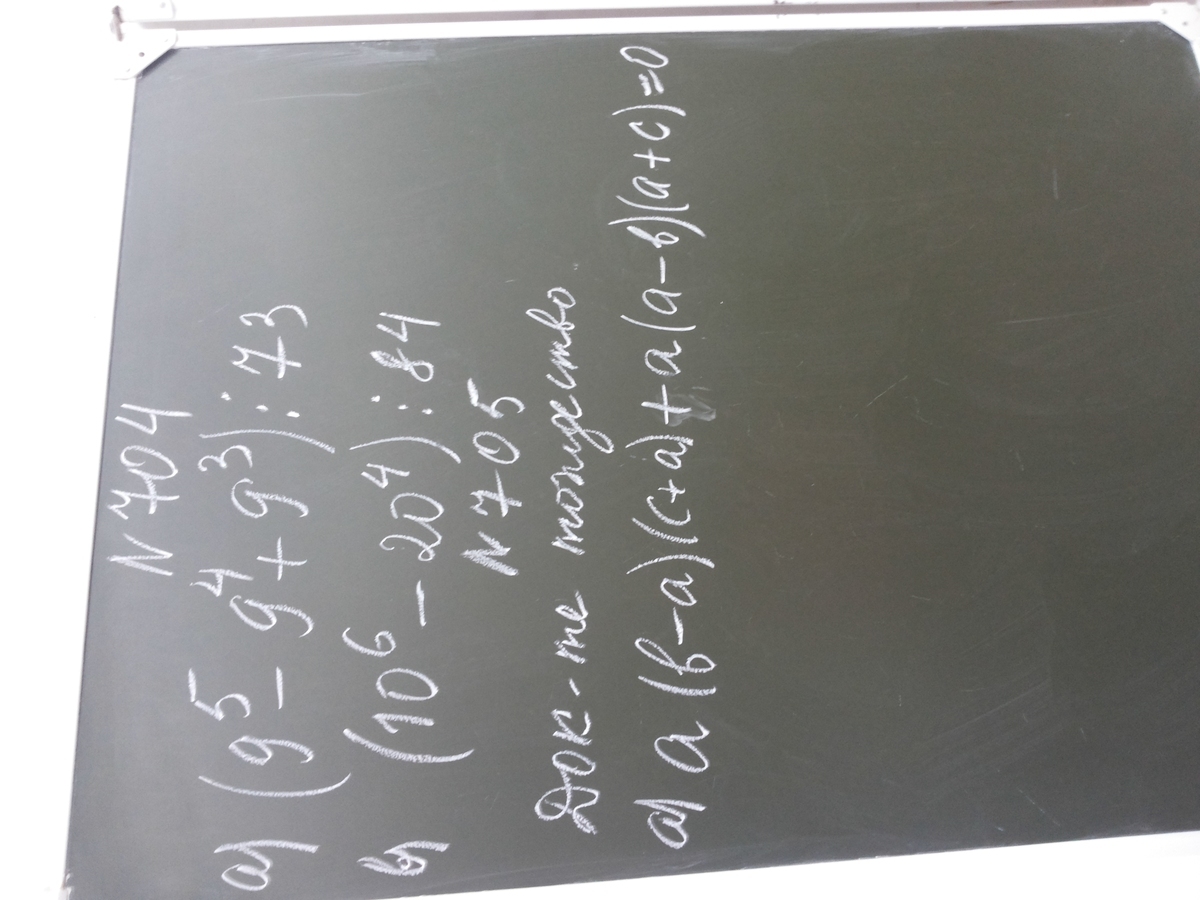 N 704
а) (9⁵ - 9⁴ + 9³) ⋮ 73
б) (10⁶ - 20⁴) ⋮ 84
N 705
Док-те тождество.
а) a (в-a)(c+a)+a(a-в)(a+c)=0